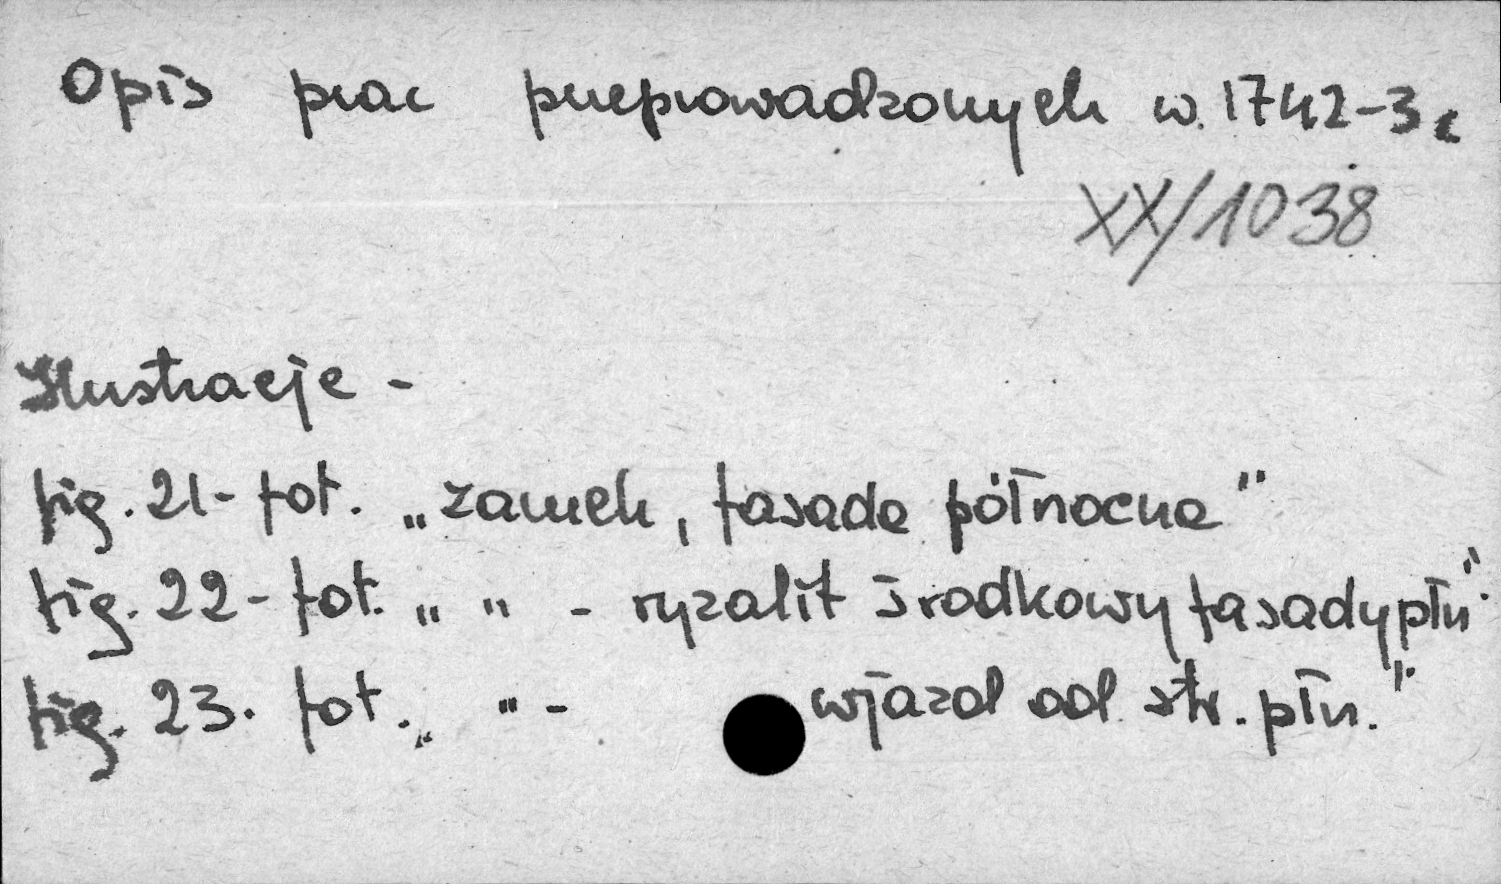 Opis prac przeprowadzonych w. 1742-3 r
XX/1038
Ilustracje -
fig. 21 - fot. „zamek, fasada północna"
fig. 22 - fot. „ " - ryzalit środkowy fasady płn".
fig. 23. fot. „ " - wjazd od str. płn."